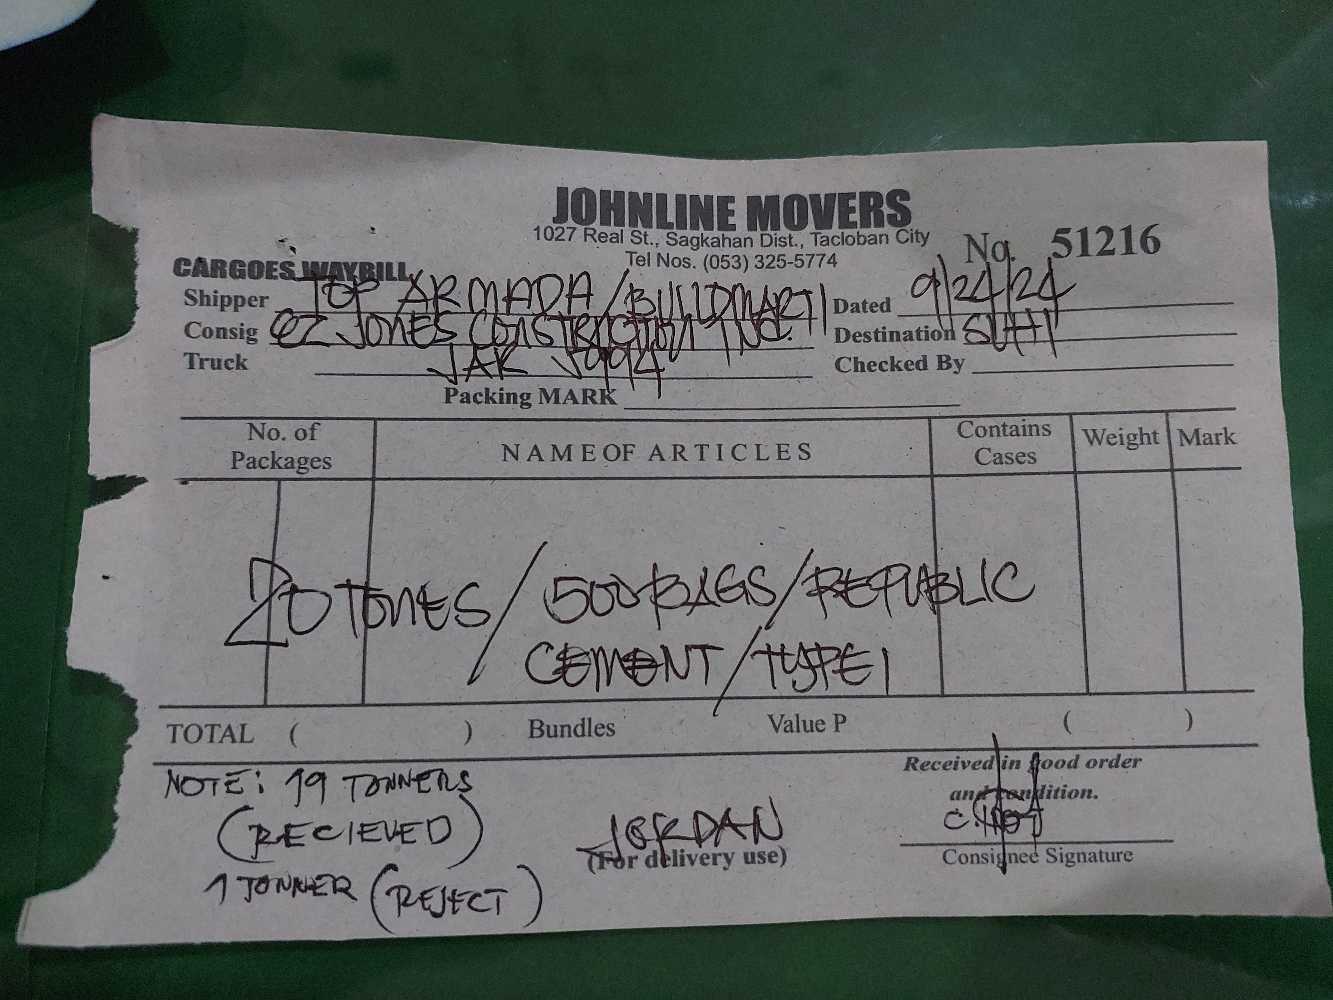 JOHNLINE MOVERS
1027 Real St., Sagkahan Dist., Tacloban City
Tel Nos. (053) 325-5774
No. 51216
CARGOES WAYBILL
Shipper TOP ARMADA/BUILDMART1 Dated 9/24/24
Consig OZ JONES CONSTRUCTION INC. Destination
Truck JAK 5994 Checked By
Packing MARK
No. of Packages NAME OF ARTICLES Contains Cases Weight Mark
20 TONES/500 BAGS/REPUBLIC
CEMENT/TYPE 1
TOTAL ( ) Bundles Value P ( )
NOTE: 19 TONNERS
(RECIEVED)
1 TONNER (REJECT)
JORDAN
(For delivery use)
Received in good order
and condition.
Consignee Signature